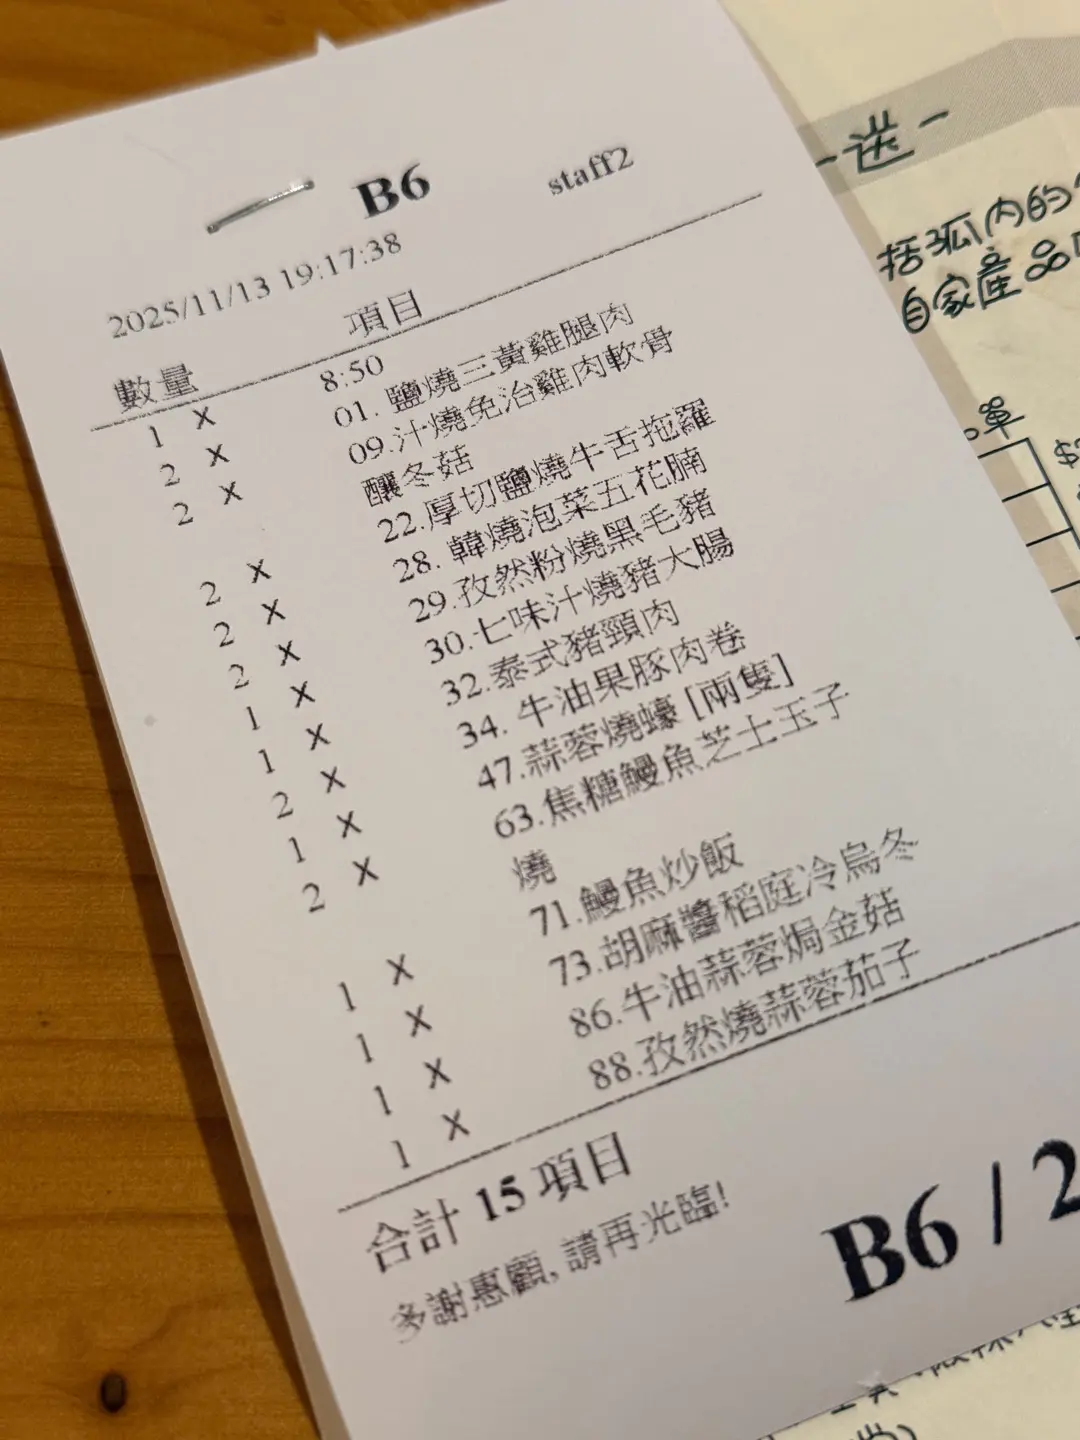 B6 staff2
2025/11/13 19:17:38
數量 項目
1 x 8:50
2 x 01. 鹽燒三黃雞腿肉
2 x 09.汁燒免治雞肉軟骨
釀冬菇
2 x 22.厚切鹽燒牛舌拖羅
2 x 28. 韓燒泡菜五花腩
2 x 29.孜然粉燒黑毛豬
1 x 30.七味汁燒豬大腸
1 x 32.泰式豬頸肉
2 x 34. 牛油果豚肉卷
1 x 47.蒜蓉燒蠔 [兩隻]
2 x 63.焦糖鰻魚芝士玉子
燒
1 x 71.鰻魚炒飯
1 x 73.胡麻醬稻庭冷烏冬
1 x 86.牛油蒜蓉焗金菇
1 x 88.孜然燒蒜蓉茄子
合計 15 項目
多謝惠顧, 請再光臨!
B6 / 2
一送一
括弧內的
自家產品
單